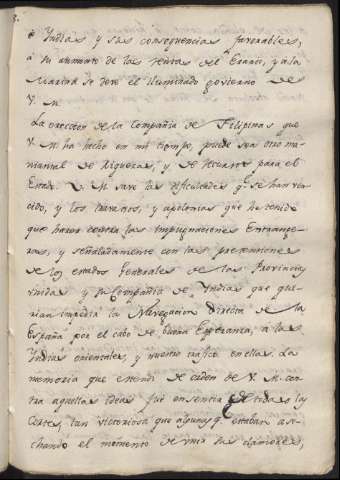 Indias y sus consequencias favorables,
à su aumento de las rentas del Erario, y à la
Marina se deve el iluminado govierno de
V. M.
La ereccion de la Compañia de Filipinas que
V. M. ha hecho en mi tiempo, puede ser otro ma-
nantial de riquezas, y de recursos para el
Estado. V. M. save las dificultades q.e se han ven-
cido, y los travajos, y apologias que he tenido
que hacer contra las impugnaciones Extrange-
ras, y señaladamente con las pretensiones
de los estados Generales de las Provincias
unidas y su Compañia de Indias que que-
rian impedir la Navegacion directa de la
España por el cabo de buena Esperanza, a las
Indias orientales, y nuestro trafico en ellas. La
memoria que extendi de orden de V. M. con-
tra aquellas ideas fue en sentir de todas las
Cortes, tan victoriosa que algunas q.e estaban ase-
chando el momento de unir sus clamores,